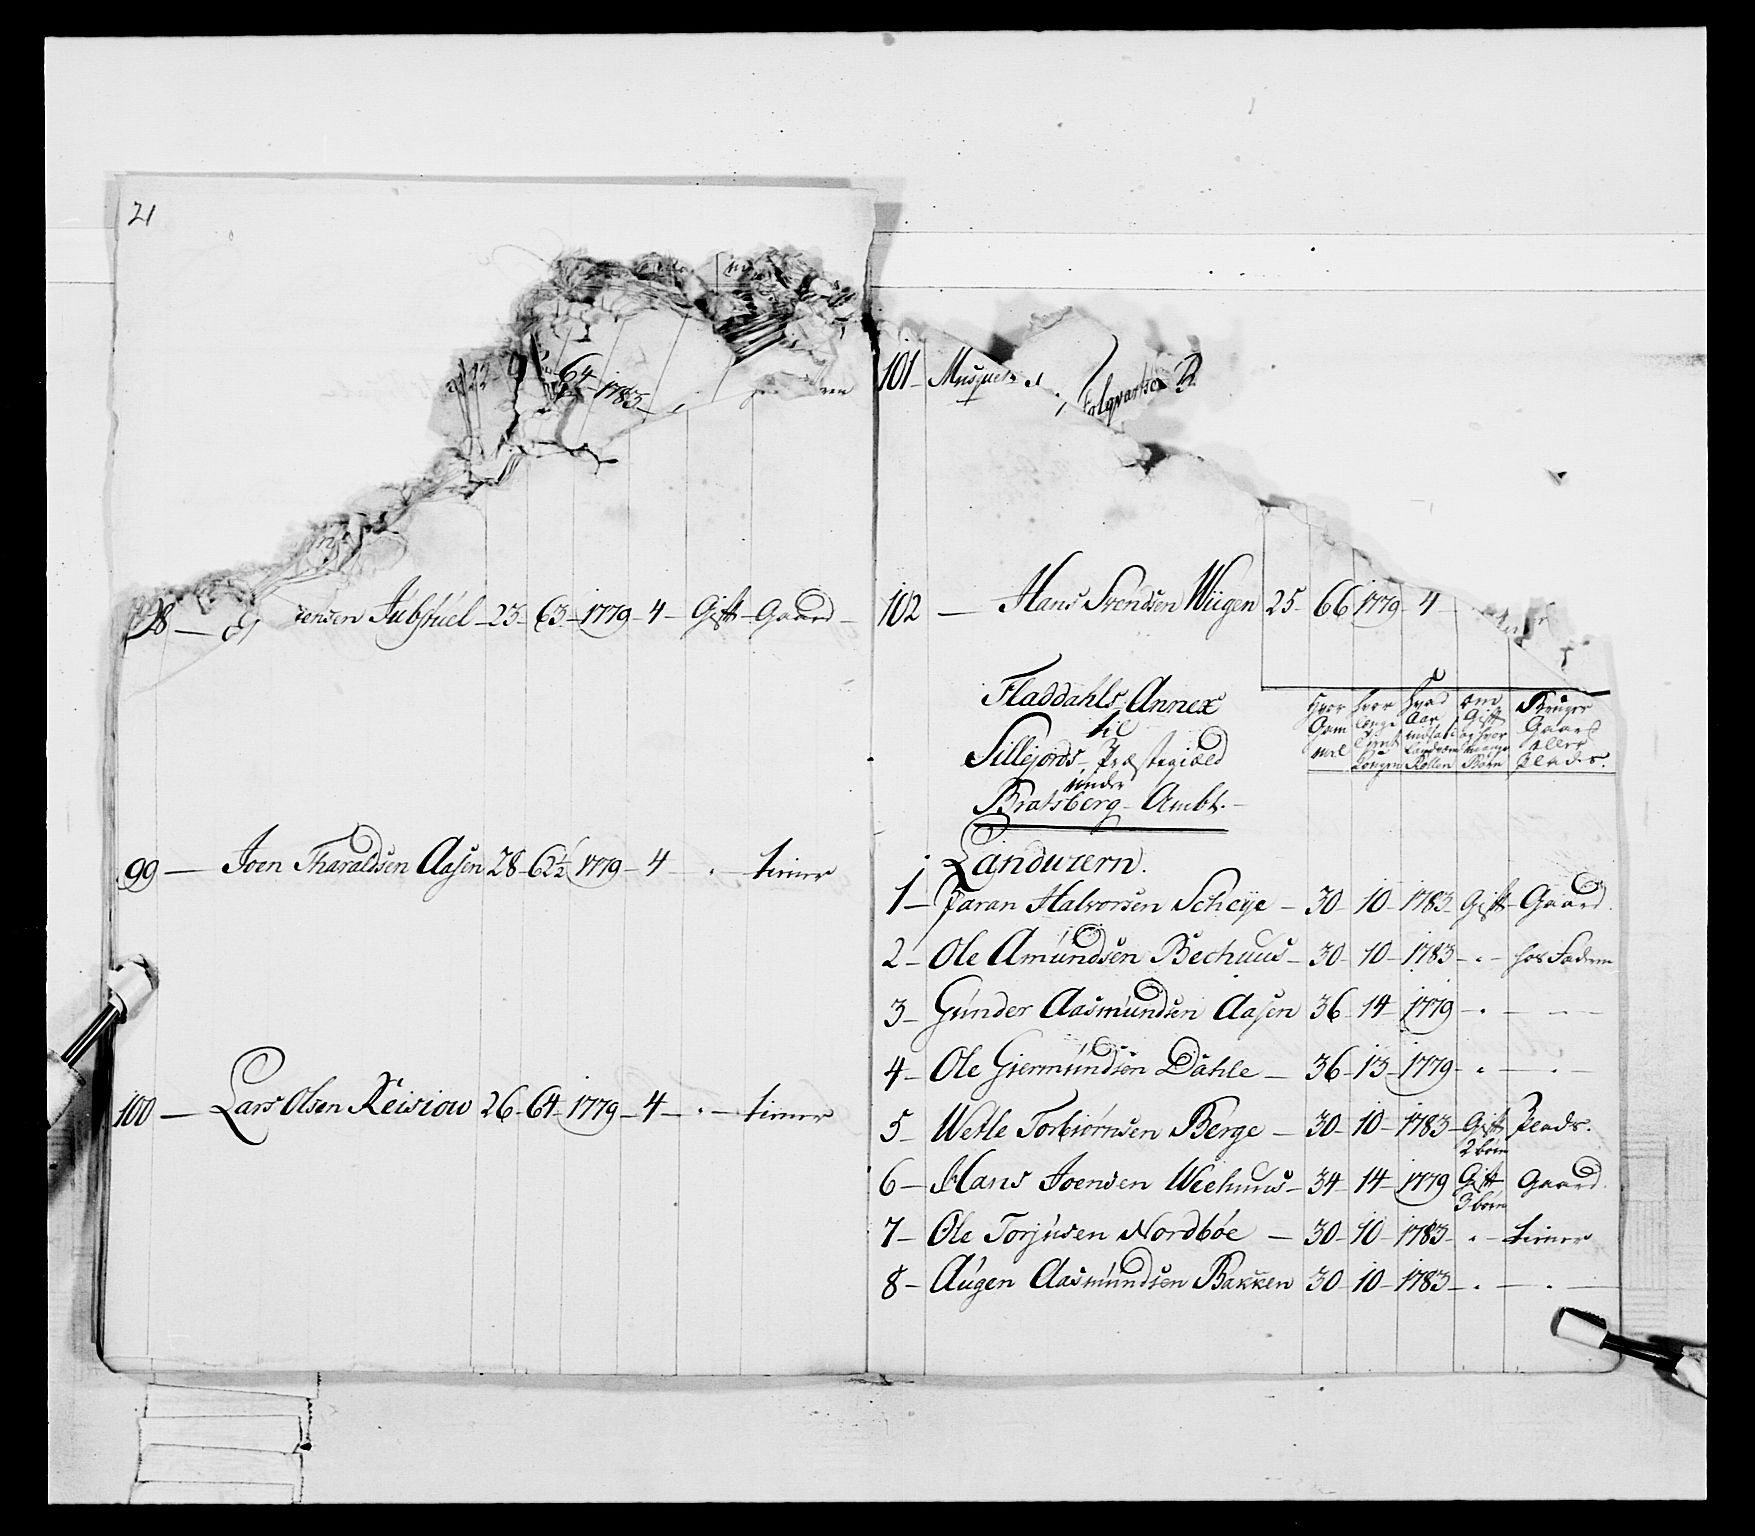 21
64 1783
98 — ensen Jubskuel — 23 — 63 — 1779 — 4 — Gift — Gaard —
99 — Joen Tharaldsen Aasen 28 — 62½ — 1779 — 4 — " — tiener
100 — Lars Olsen Reisiow 26 — 64 — 1779 — 4 — " — tiener
101 — Musquet
102 — Hans Svendsen Wiigen 25 — 66 1779 — 4 —
Fladdahls Annex
til
Sillejords Præstegiæld
under
Bratsberg Ambt.
Hvor Gam mel
hvor længe tient Kongen
hvad Aar indsat i Landværn Rollen
om Gift og hvor mange Børn
Bruger Gaard eller Plads.
Landværn.
1 — Taran Halvorsen Scheye — 30 — 10 — 1783 — Gift — Gaard
2 — Ole Amundsen Bechuus — 30 — 10 — 1783 — " — hos Faderen
3 — Gunder Aasmundsen Aasen 36 — 14 — 1779 — " —
4 — Ole Giermundsen Dahle — 36 — 13 — 1779 — " — " —
5 — Wetle Torbiørnsen Berge — 30 — 10 — 1783 — Gift 2 børn Plads.
6 — Hans Joensen Weehuus — 34 — 14 — 1779 Gift 3 børn Gaard
7 — Ole Torjusen Nordbøe — 30 — 10 — 1783 — " — tiener
8 — Augen Aasmundsen Bakken 30 — 10 — 1783 — " — " —